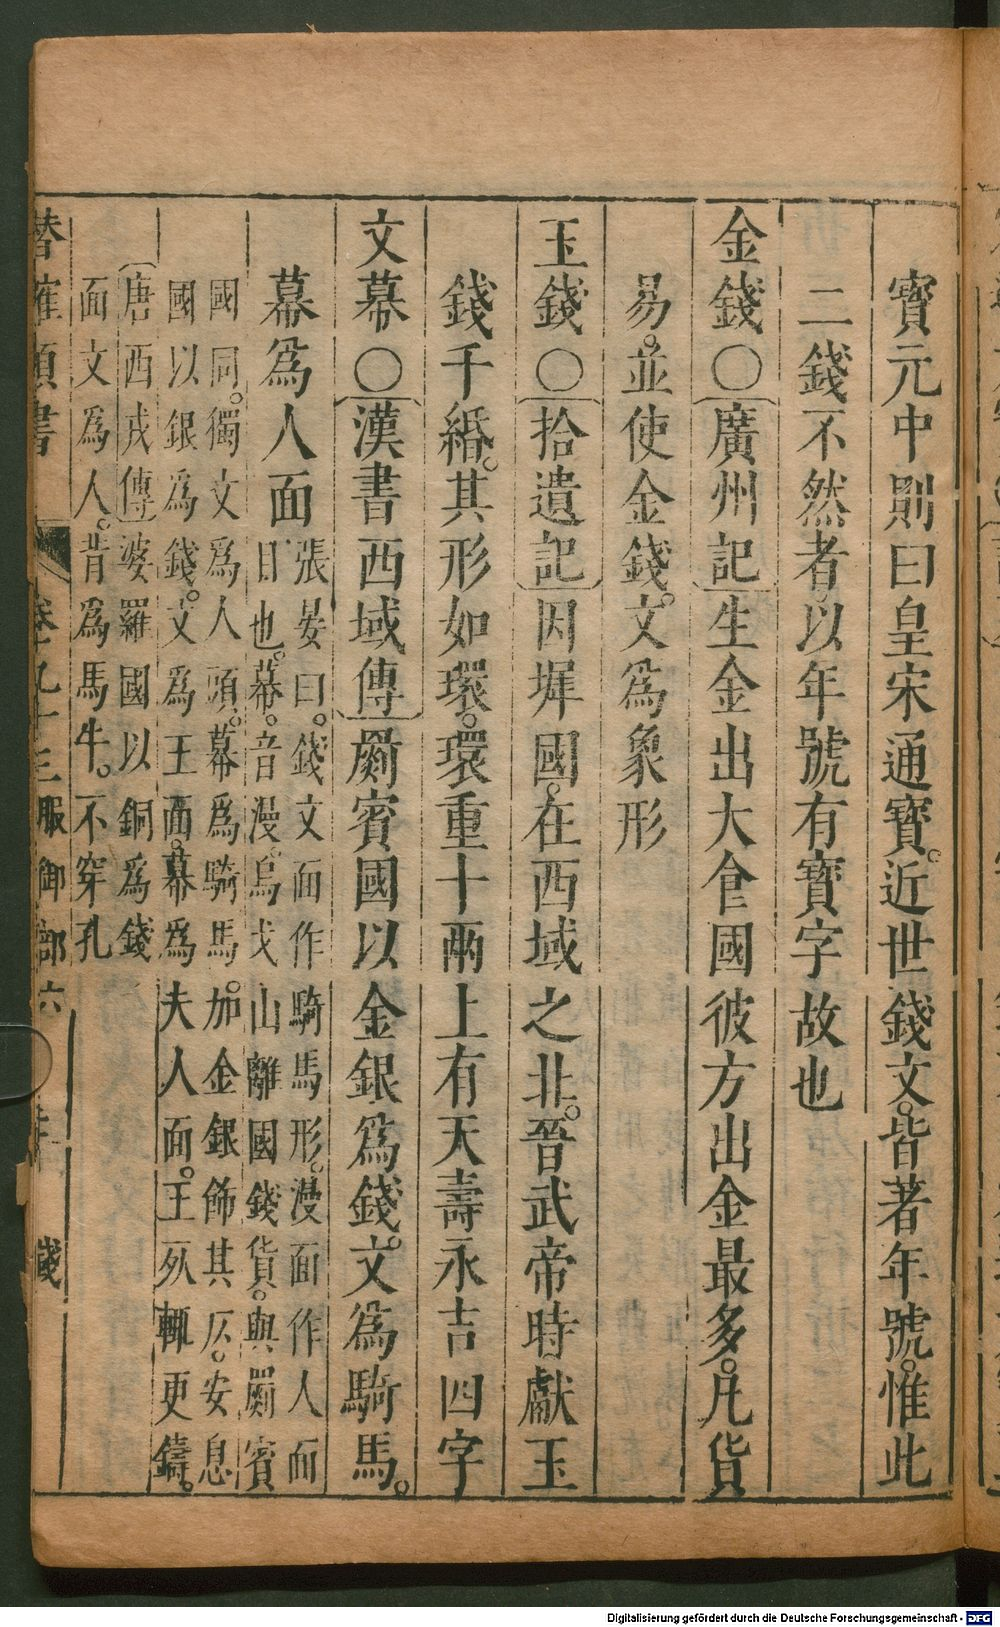 寳元中則曰皇宋通寳。近世錢文。皆著年號。惟此
二錢不然者。以年號有寳字故也
金錢〇廣州記生金出大食國彼方出金最多。凡貨
易。並使金錢。文爲象形
玉錢〇拾遺記因墀國。在西域之北。晉武帝時獻玉
錢千緡。其形如環。環重十兩上有天壽永吉四字
文幕〇漢書西域傳罽賓國以金銀爲錢。文爲騎馬。
幕爲人面
張晏曰。錢文面作騎馬形。漫面作人面
目也。幕。音漫。烏戈山離國錢貨。與罽賓
國同。獨文爲人頭。幕爲騎馬。加金銀飾其仄。安息
國以銀爲錢。文爲王面。幕爲夫人面。王死輒更鑄。
唐西戎傳婆羅國以銅爲錢
面文爲人。背爲馬牛。不穿孔
潛確類書 卷九十三 服御部六 錢
Digitalisierung gefördert durch die Deutsche Forschungsgemeinschaft - DFG